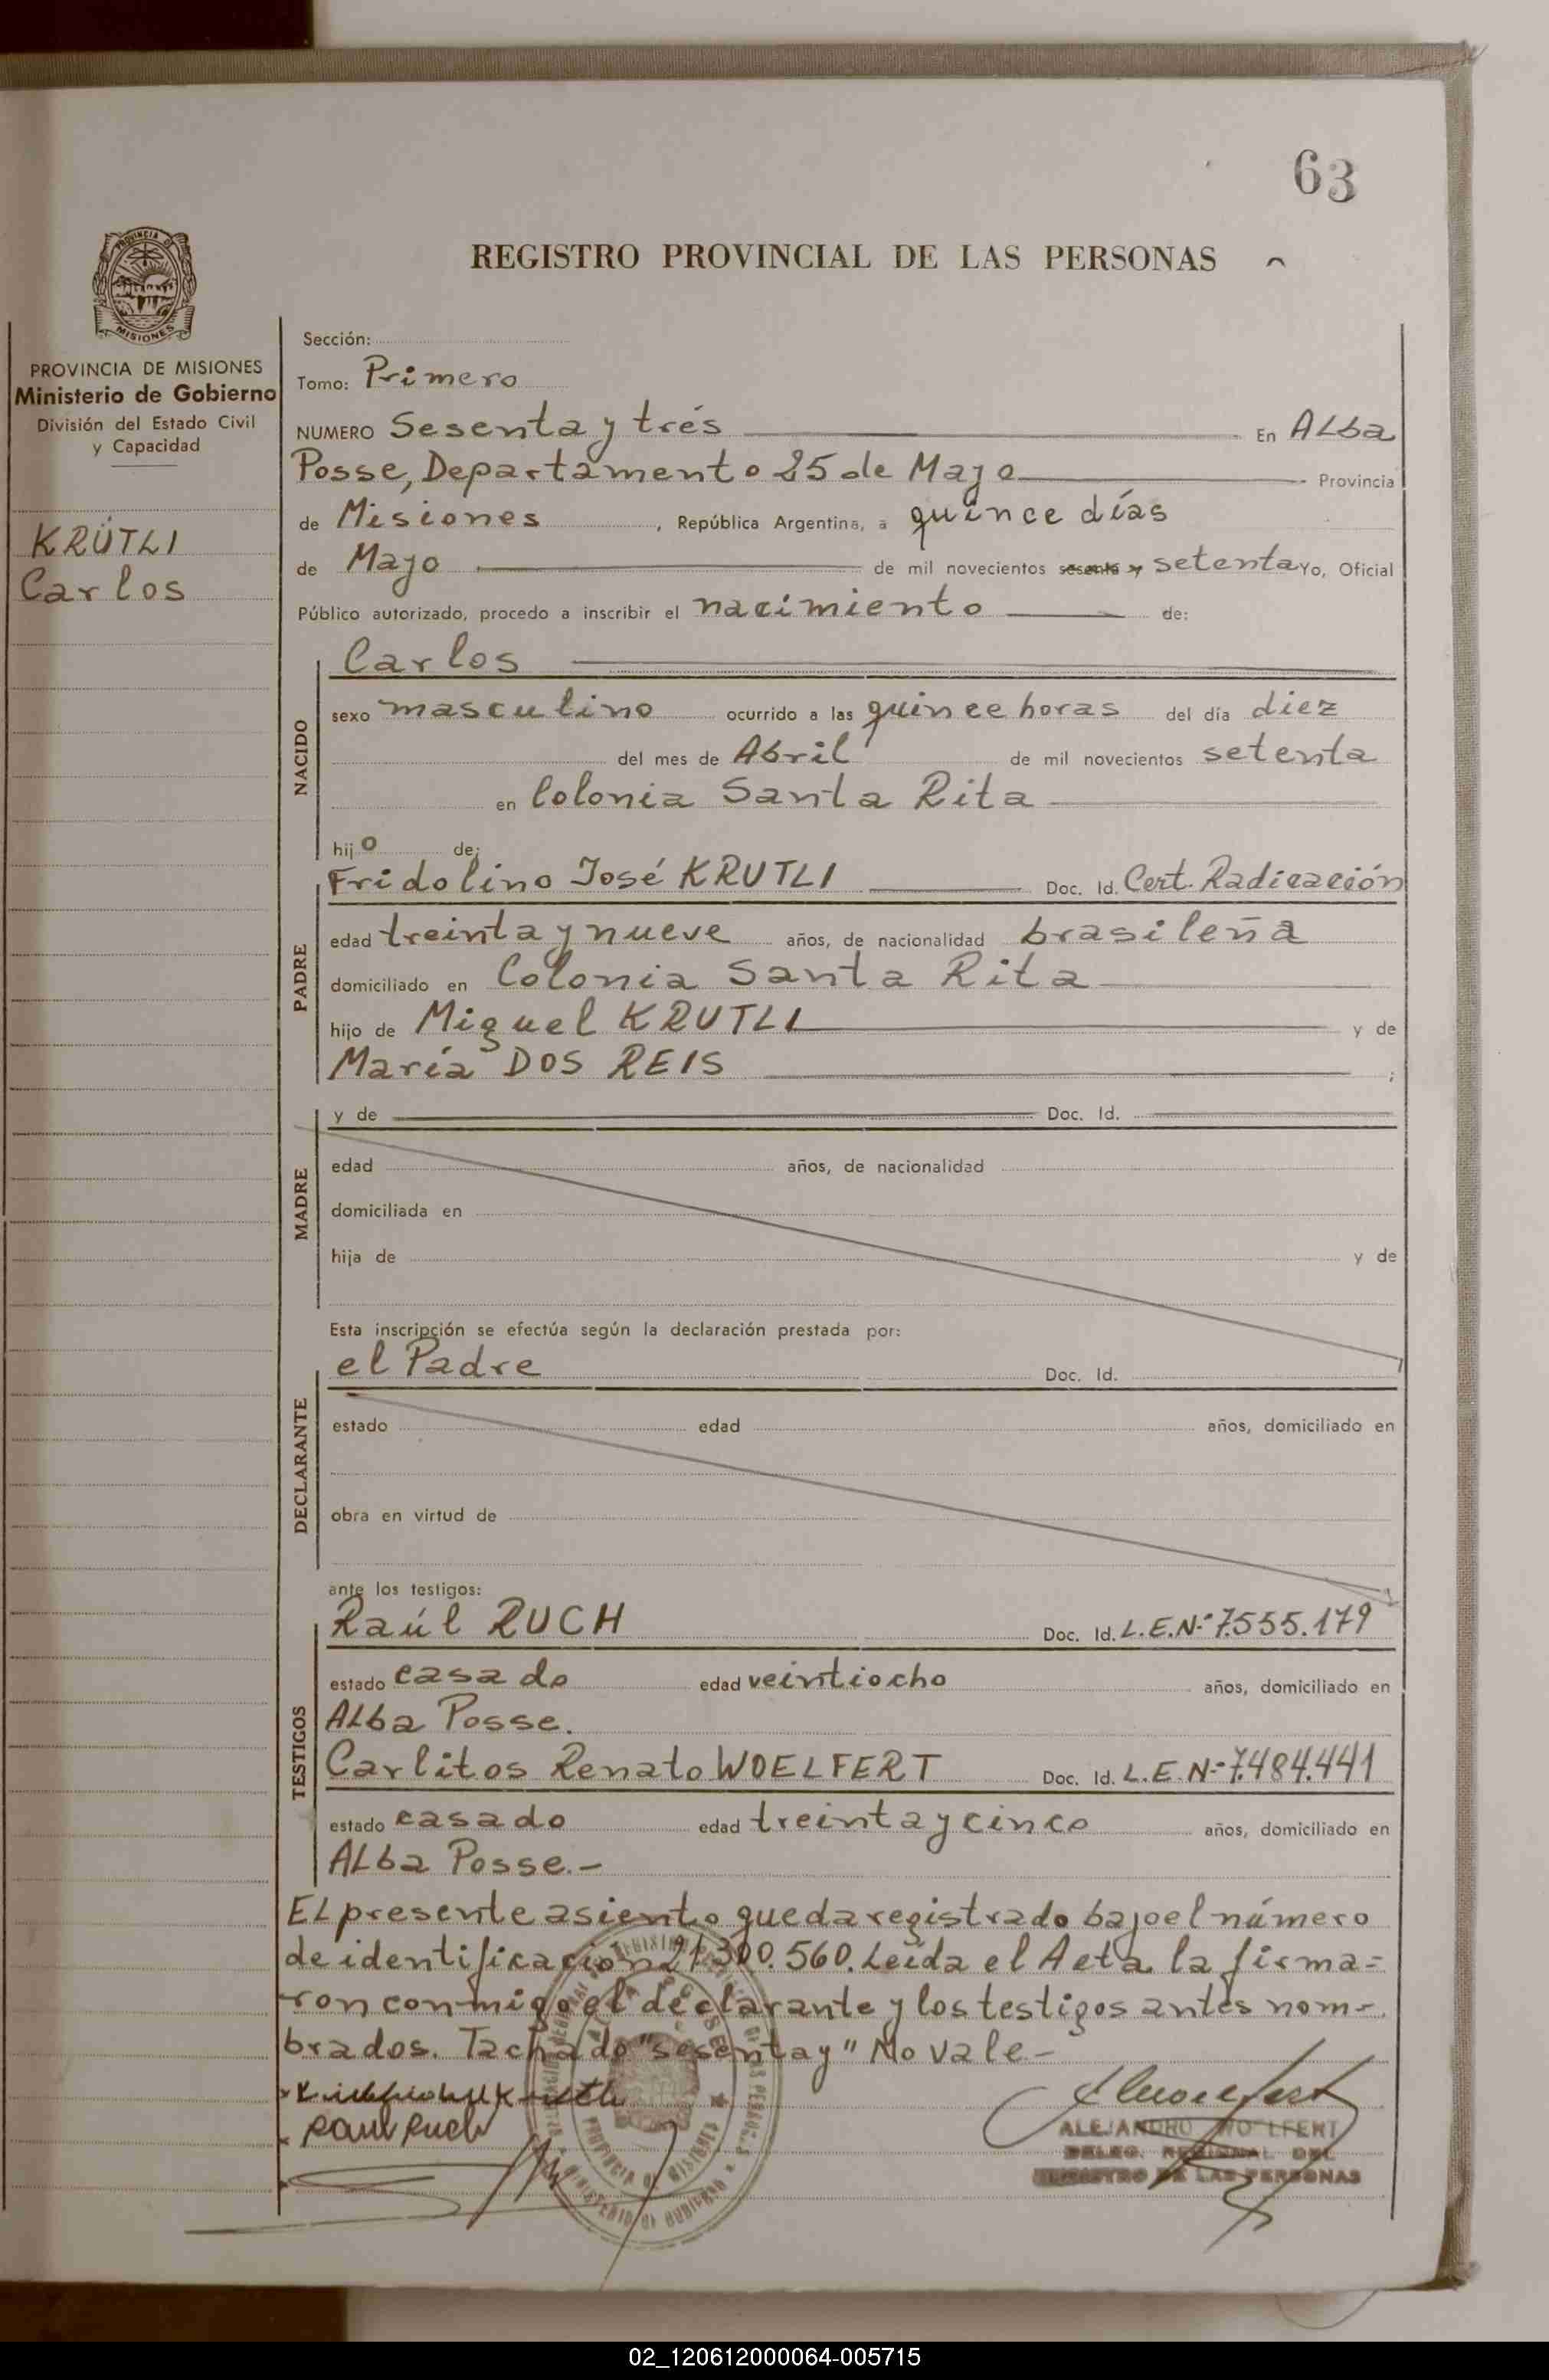 63
REGISTRO PROVINCIAL DE LAS PERSONAS
PROVINCIA DE
MISIONES
PROVINCIA DE MISIONES
Ministerio de Gobierno
División del Estado Civil
y Capacidad
KRÜTLI
Carlos
Sección:
Tomo: Primero
NUMERO Sesenta y trés En Alba
Posse, Departamento 25 de Mayo Provincia
de Misiones, República Argentina, a quince días
de Mayo de mil novecientos sesenta y setenta Yo, Oficial
Público autorizado, procedo a inscribir el nacimiento de:
NACIDO
Carlos
sexo masculino ocurrido a las quince horas del día diez
del mes de Abril de mil novecientos setenta
en Colonia Santa Rita
hijo de:
PADRE
Fridolino José KRUTLI Doc. Id. Cert. Radicación
edad treinta y nueve años, de nacionalidad brasileña
domiciliado en Colonia Santa Rita
hijo de Miguel KRUTLI y de
María DOS REIS ;
MADRE
y de Doc. Id.
edad años, de nacionalidad
domiciliada en
hija de y de
Esta inscripción se efectúa según la declaración prestada por:
DECLARANTE
el Padre Doc. Id.
estado edad años, domiciliado en
obra en virtud de
ante los testigos:
TESTIGOS
Raúl RUCH Doc. Id. L.E.Nº 7.555.179
estado casado edad veintiocho años, domiciliado en
Alba Posse.
Carlitos Renato WOELFERT Doc. Id. L.E.Nº 7.484.441
estado casado edad treinta y cinco años, domiciliado en
Alba Posse.-
El presente asiento queda registrado bajo el número
de identificación 21.300.560. Leída el Acta la firma-
ron conmigo el declarante y los testigos antes nom-
brados. Tachado "sesenta y" No vale-
Raul Ruch
ALEJANDRO WOELFERT
DELEG. REGIONAL DEL
REGISTRO DE LAS PERSONAS
PROVINCIA DE MISIONES
MINISTERIO DE GOBIERNO
02_120612000064-005715